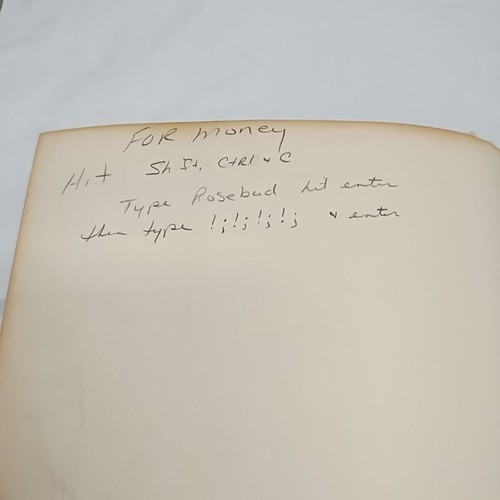 FOR money
Hit Shft, CTRl & C
Type Rosebud hit enter
then type !;!;!;!; & enter